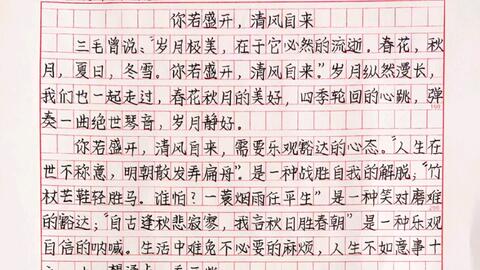 你若盛开，清风自来
三毛曾说：“岁月极美，在于它必然的流逝。春花，秋
月，夏日，冬雪。你若盛开，清风自来。”岁月纵然漫长，
我们也一起走过，春花秋月的美好，四季轮回的心跳，弹
奏一曲绝世琴音，岁月静好。
你若盛开，清风自来，需要乐观豁达的心态。“人生在
世不称意，明朝散发弄扁舟”是一种战胜自我的解脱；“竹
杖芒鞋轻胜马。谁怕？一蓑烟雨任平生”是一种笑对磨难
的豁达；“自古逢秋悲寂寥，我言秋日胜春朝”是一种乐观
自信的呐喊。生活中难免不必要的麻烦，人生不如意事十